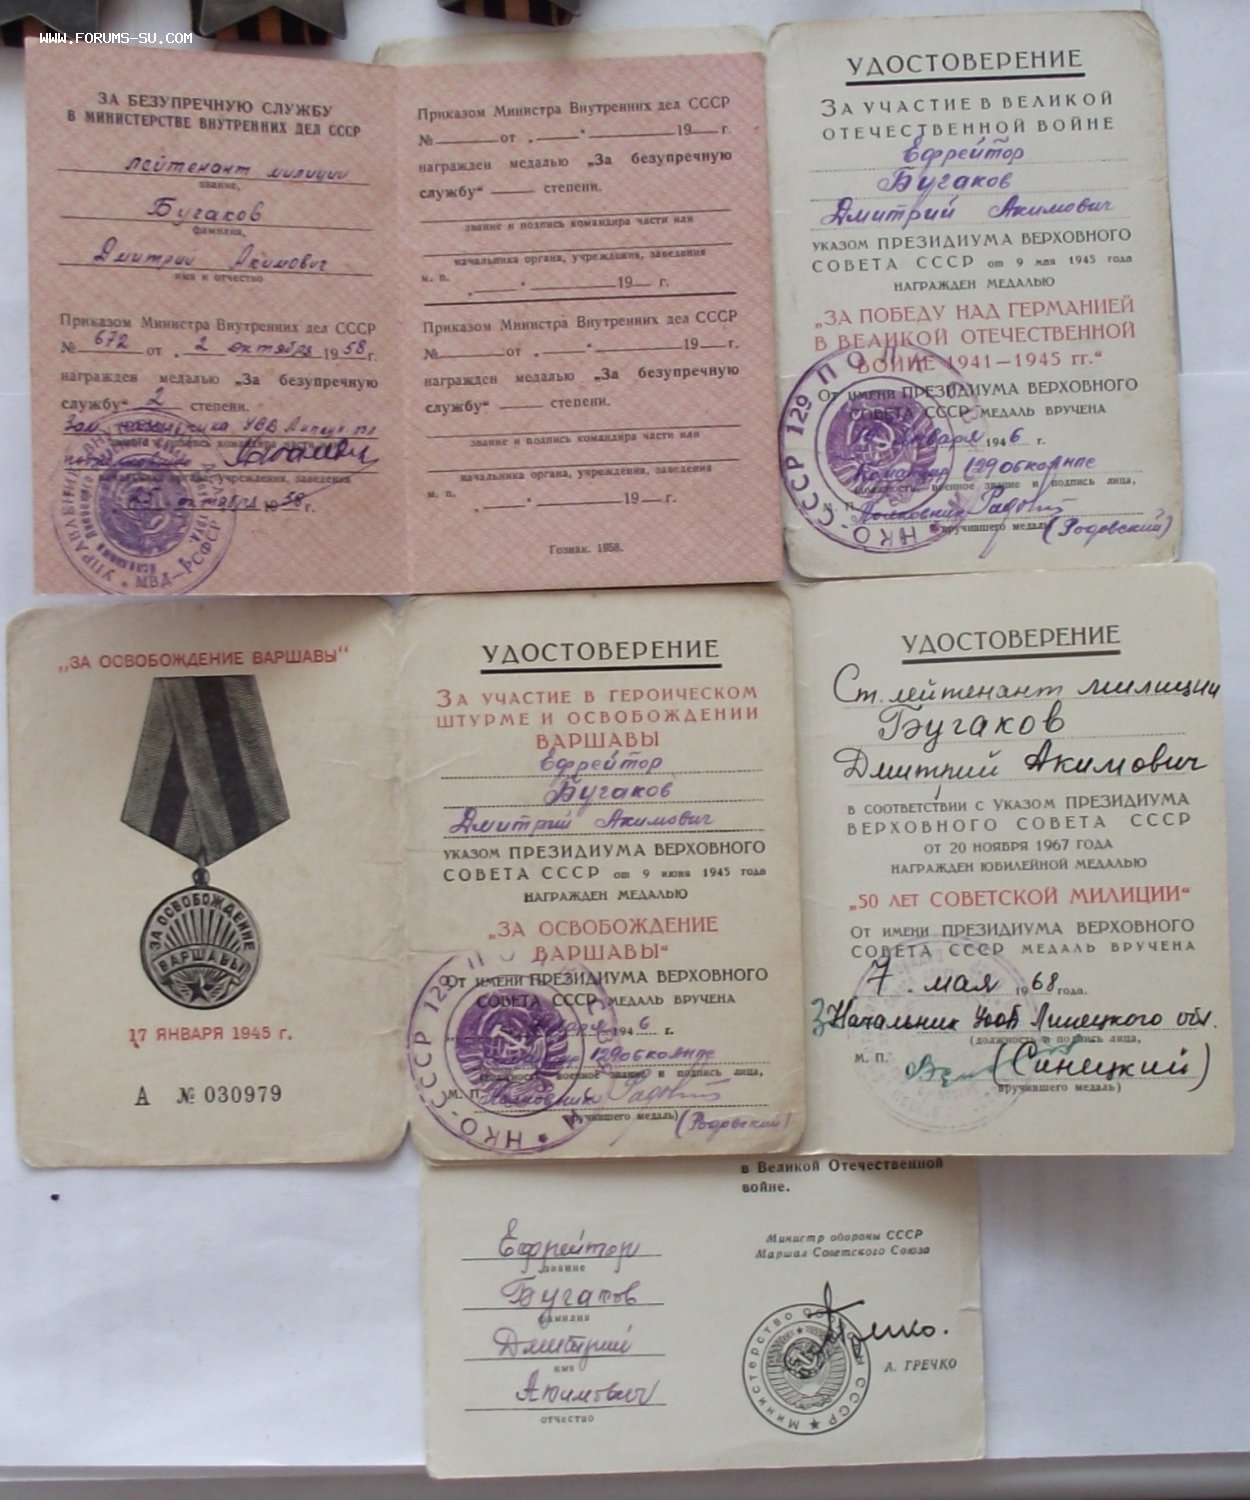 WWW.FORUMS-SU.COM
ЗА БЕЗУПРЕЧНУЮ СЛУЖБУ
В МИНИСТЕРСТВЕ ВНУТРЕННИХ ДЕЛ СССР
лейтенант милиции
звание,
Бугаков
фамилия,
Дмитрий Акимович
имя и отчество
Приказом Министра Внутренних дел СССР
№ 672 от „2 октября 1958г.
награжден медалью „За безупречную
службу“ 2 степени.
Зам. начальника УВД Липецк
звание и подпись командира части или
начальника органа, учреждения, заведения
октября 1958г.
УПРАВЛЕНИЕ
МВД-РСФСР
Приказом Министра Внутренних дел СССР
№ от „ “ 19 г.
награжден медалью „За безупречную
службу“ степени.
звание и подпись командира части или
начальника органа, учреждения, заведения
м. п.
„ “ 19 г.
Приказом Министра Внутренних дел СССР
№ от „ “ 19 г.
награжден медалью „За безупречную
службу“ степени.
звание и подпись командира части или
начальника органа, учреждения, заведения
м. п.
„ “ 19 г.
Гознак. 1958.
УДОСТОВЕРЕНИЕ
ЗА УЧАСТИЕ В ВЕЛИКОЙ
ОТЕЧЕСТВЕННОЙ ВОЙНЕ
Ефрейтор
Бугаков
Дмитрий Акимович
УКАЗОМ ПРЕЗИДИУМА ВЕРХОВНОГО
СОВЕТА СССР от 9 мая 1945 года
НАГРАЖДЕН МЕДАЛЬЮ
„ЗА ПОБЕДУ НАД ГЕРМАНИЕЙ
В ВЕЛИКОЙ ОТЕЧЕСТВЕННОЙ
ВОЙНЕ 1941—1945 гг.“
ОТ ИМЕНИ ПРЕЗИДИУМА ВЕРХОВНОГО
СОВЕТА СССР МЕДАЛЬ ВРУЧЕНА
января 1946 г.
Командир 129
должность, военное звание и подпись лица,
М. П. Полковник
вручившего медаль) (Радовский)
НКО-СССР 129
„ЗА ОСВОБОЖДЕНИЕ ВАРШАВЫ“
ЗА ОСВОБОЖДЕНИЕ
ВАРШАВЫ
17 ЯНВАРЯ 1945 г.
А № 030979
УДОСТОВЕРЕНИЕ
ЗА УЧАСТИЕ В ГЕРОИЧЕСКОМ
ШТУРМЕ И ОСВОБОЖДЕНИИ
ВАРШАВЫ
Ефрейтор
Бугаков
Дмитрий Акимович
УКАЗОМ ПРЕЗИДИУМА ВЕРХОВНОГО
СОВЕТА СССР от 9 июня 1945 года
НАГРАЖДЕН МЕДАЛЬЮ
„ЗА ОСВОБОЖДЕНИЕ
ВАРШАВЫ“
ОТ ИМЕНИ ПРЕЗИДИУМА ВЕРХОВНОГО
СОВЕТА СССР МЕДАЛЬ ВРУЧЕНА
1946 г.
129
военное звание и подпись лица,
М. П. Полковник
вручившего медаль) (Радовский)
НКО-СССР 129
УДОСТОВЕРЕНИЕ
Ст. лейтенант милиции
Бугаков
Дмитрий Акимович
В СООТВЕТСТВИИ С УКАЗОМ ПРЕЗИДИУМА
ВЕРХОВНОГО СОВЕТА СССР
ОТ 20 НОЯБРЯ 1967 ГОДА
НАГРАЖДЕН ЮБИЛЕЙНОЙ МЕДАЛЬЮ
„50 ЛЕТ СОВЕТСКОЙ МИЛИЦИИ“
ОТ ИМЕНИ ПРЕЗИДИУМА ВЕРХОВНОГО
СОВЕТА СССР МЕДАЛЬ ВРУЧЕНА
7 мая 1968 года.
Начальник УООП Липецкого обл.
(должность и подпись лица,
М. П. (Синецкий)
вручившего медаль)
в Великой Отечественной
войне.
Ефрейтор
звание
Бугаков
фамилия
Дмитрий
имя
Акимович
отчество
Министр обороны СССР
Маршал Советского Союза
Министерство Обороны СССР
А. ГРЕЧКО